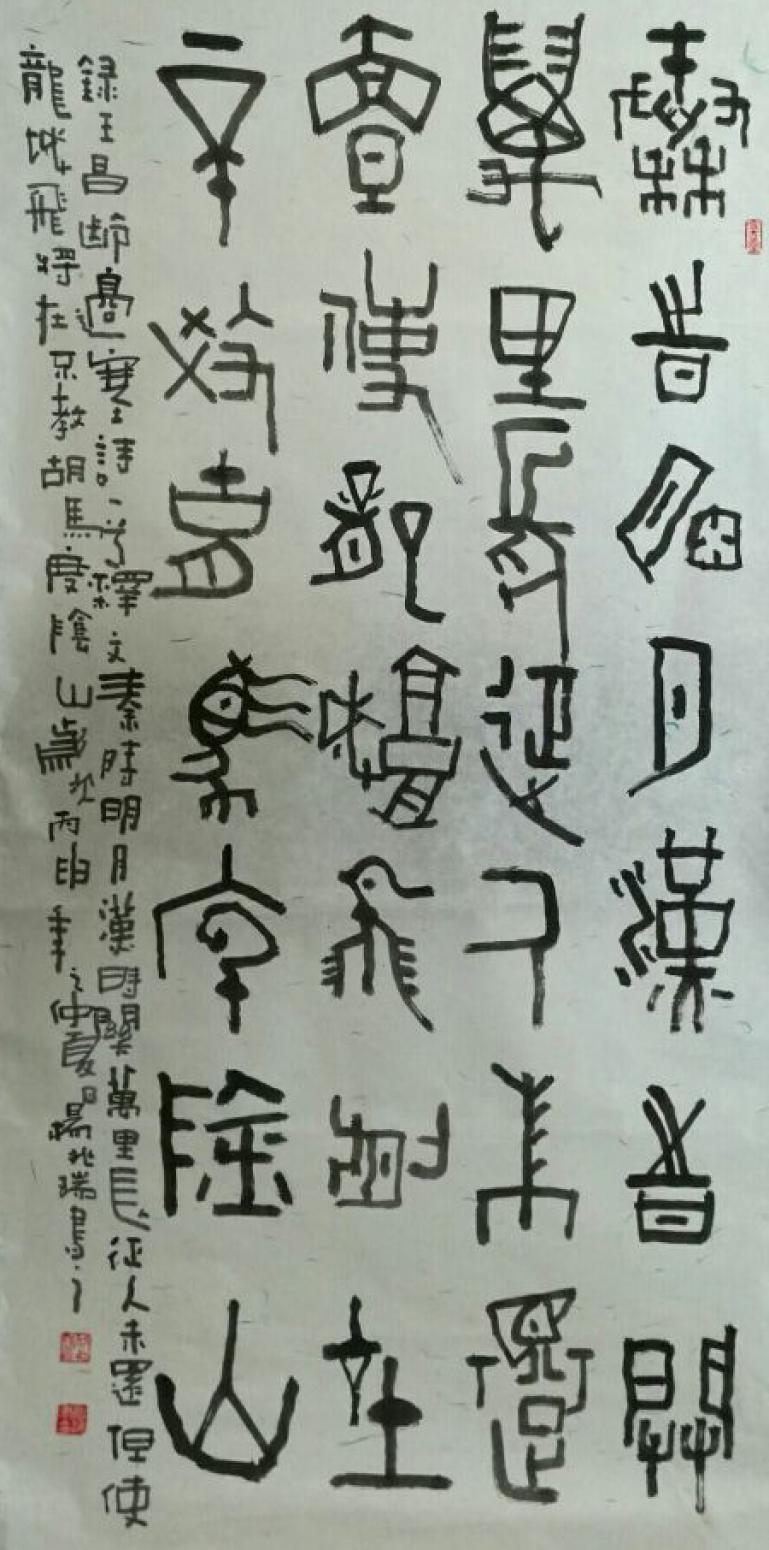 秦時明月漢時關
萬里長征人未還
但使龍城飛將在
不教胡馬度陰山
録王昌齡邊塞詩一首釋文秦時明月漢時關萬里長征人未還但使
龍城飛將在不教胡馬度陰山歲次丙申年之仲夏日楊兆瑞書之